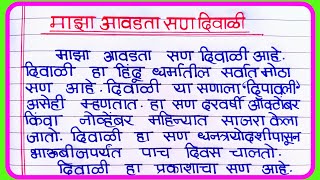 माझा आवडता सण दिवाळी
माझा आवडता सण दिवाळी आहे.
दिवाळी हा हिंदू धर्मातील सर्वात मोठा
सण आहे. दिवाळी या सणाला 'दिपावली'
असेही म्हणतात. हा सण दरवर्षी ऑक्टोबर
किंवा नोव्हेंबर महिन्यात साजरा केला
जातो. दिवाळी हा सण धनत्रयोदशीपासून
भाऊबीजपर्यंत पाच दिवस चालतो.
दिवाळी हा प्रकाशाचा सण आहे.